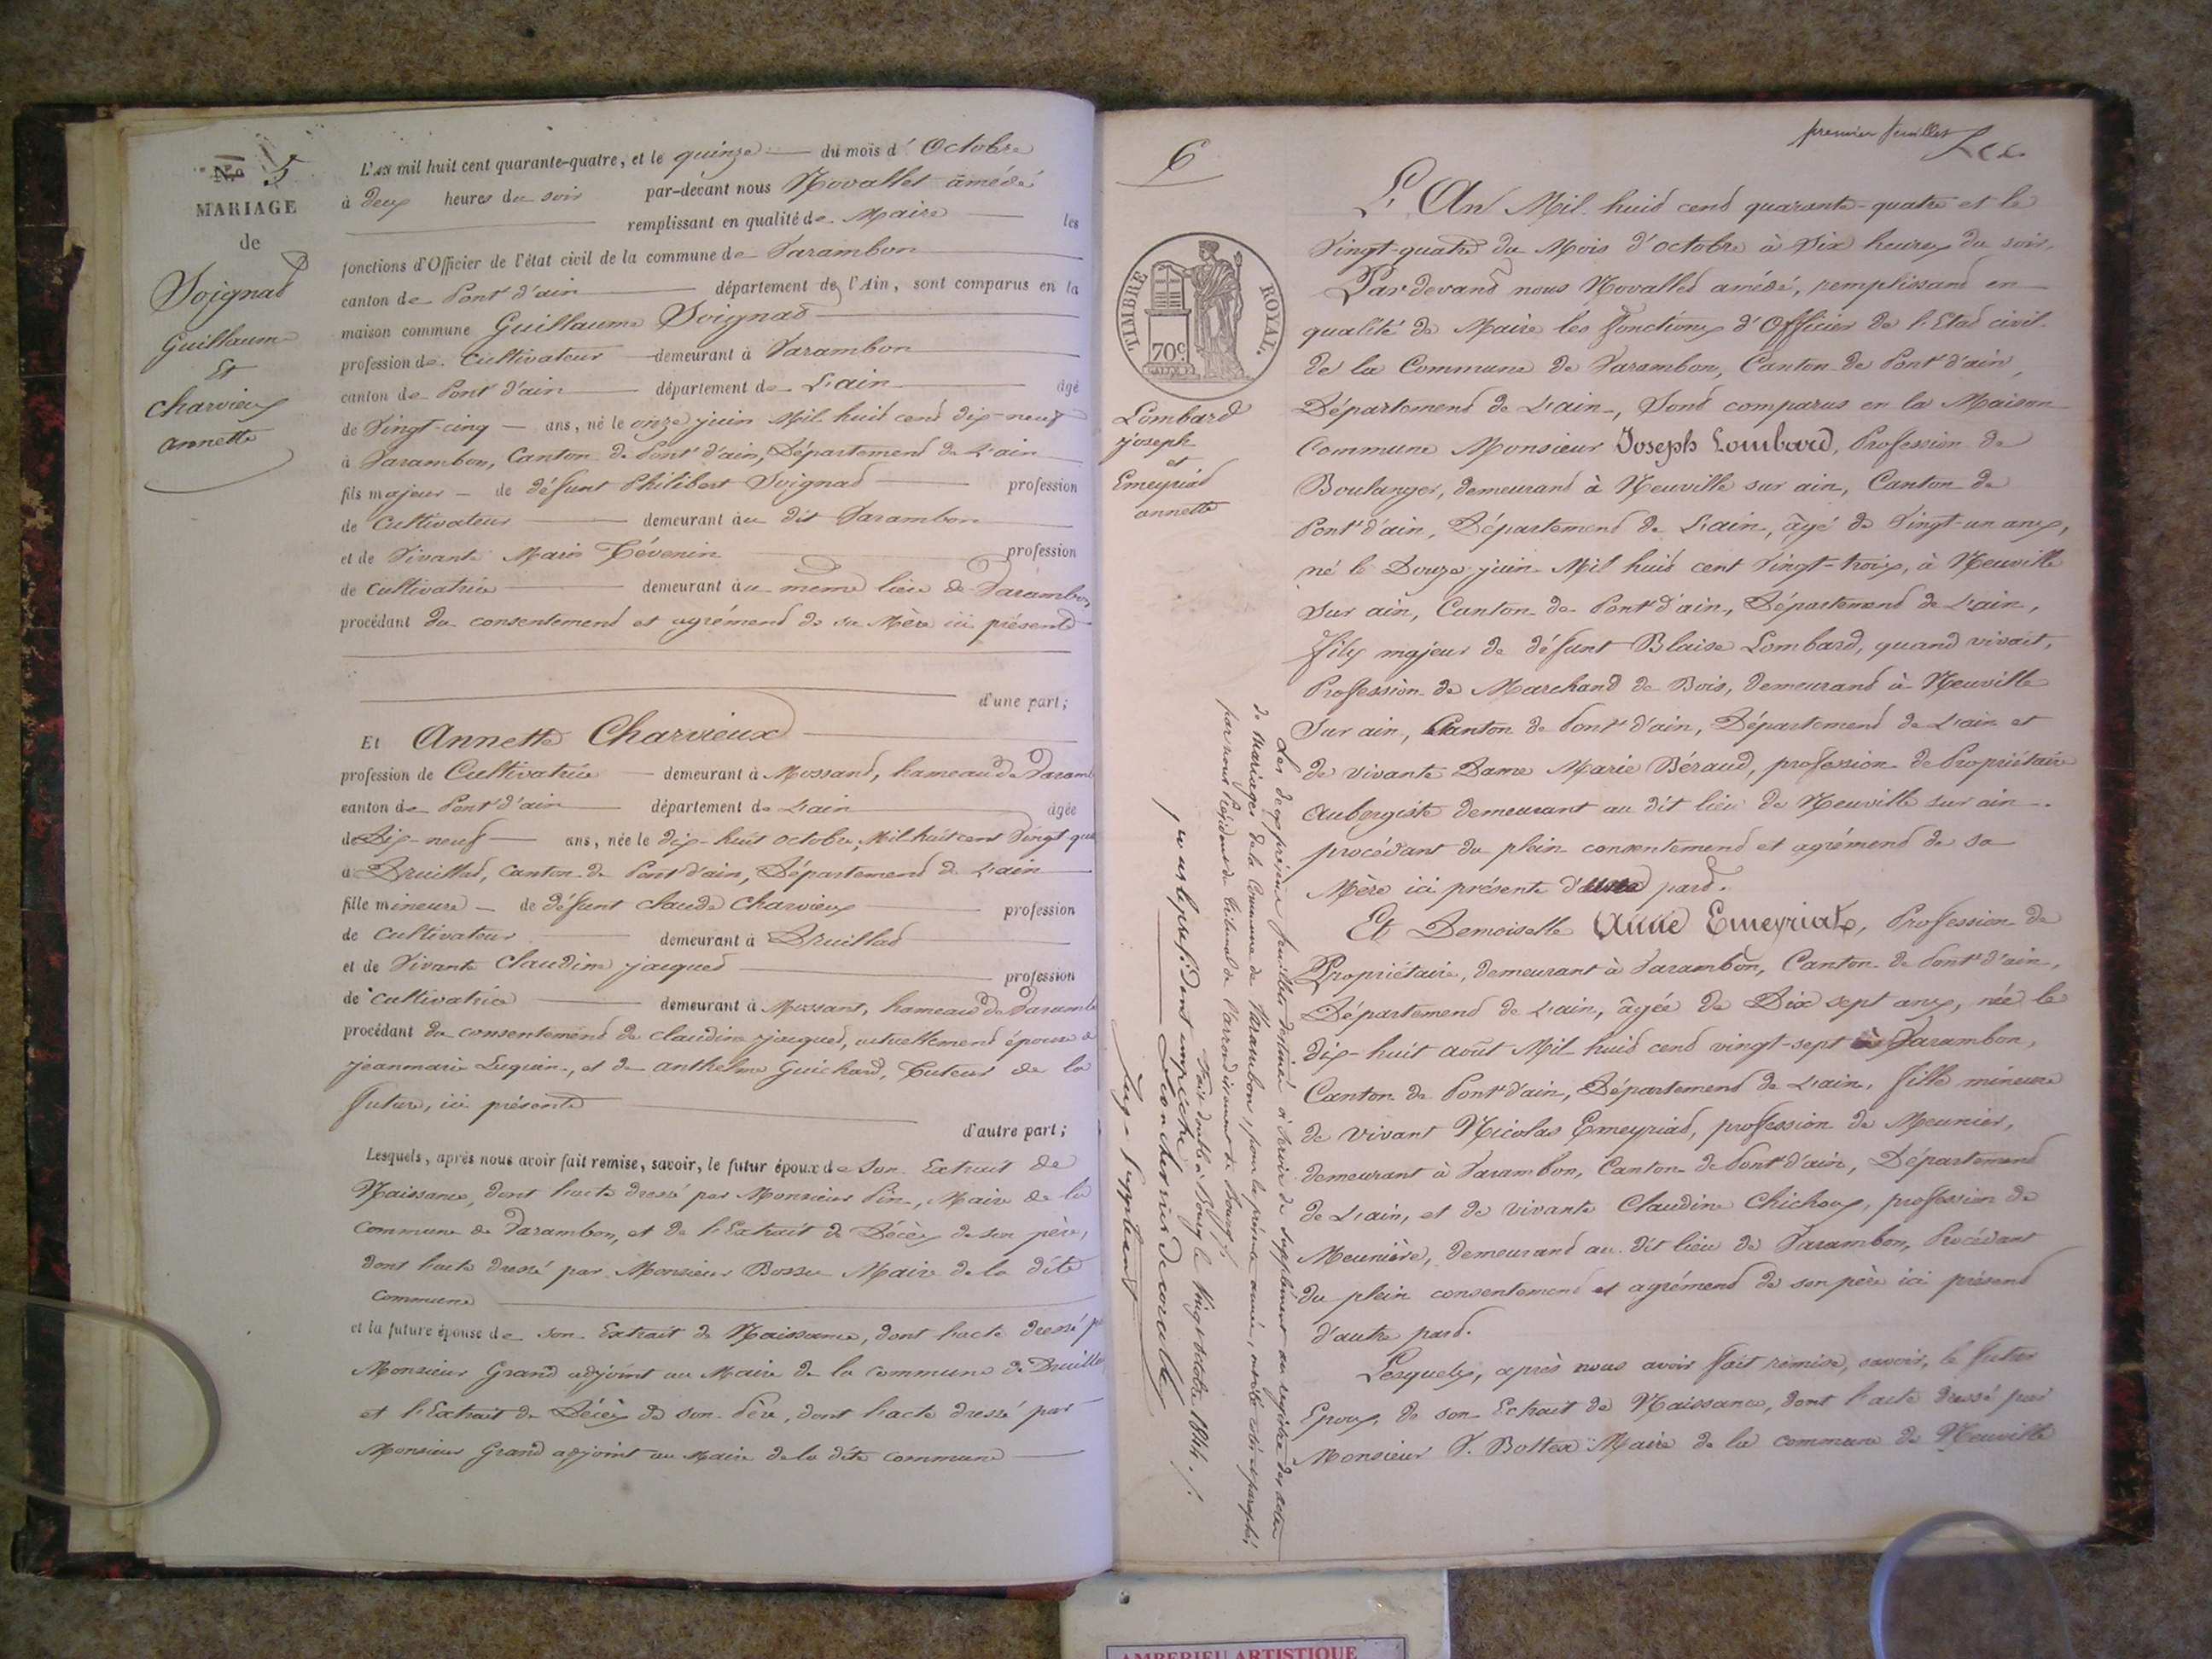 N.º 5
MARIAGE
de
Soignat
Guillaume
Et
Charvieux
annette
L'an mil huit cent quarante-quatre, et le quinze du mois d'Octobre
à deux heures du soir par-devant nous Novallet amédé
remplissant en qualité de Maire les
fonctions d'Officier de l'état civil de la commune de Varambon
canton de Pont d'ain département de l'Ain, sont comparus en la
maison commune Guillaume Soignat
profession de Cultivateur demeurant à Varambon
canton de Pont d'ain département de L'ain âgé
de Vingt-cinq ans, né le onze juin Mil huit cent dix-neuf
à Varambon, Canton de Pont d'ain, Département de L'ain
fils majeur de défunt Philibert Soignat profession
de Cultivateur demeurant au dit Varambon
et de Vivante Marie Tévenin profession
de Cultivatrice demeurant au même lieu de Varambon
procédant du consentement et agrément de sa Mère ici présente
d'une part;
Et Annette Charvieux
profession de Cultivatrice demeurant à Mossant, hameau de Varamb
canton de Pont d'ain département de L'ain âgée
de Dix-neuf ans, née le dix-huit octobre, Mil huit cent Vingt qua
à Druillat, Canton de Pont d'ain, Département de L'ain
fille mineure de défunt Claude Charvieux profession
de Cultivateur demeurant à Druillat
et de Vivante Claudine jacquet profession
de Cultivatrice demeurant à Mossant, hameau de Varamb
procédant du consentement de claudine jacquet, actuellement épouse de
jeanmarie Luquin, et de anthelme Guichard, Tuteur de la
future, ici présente
d'autre part;
Lesquels, après nous avoir fait remise, savoir, le futur époux de Son Extrait de
Naissance, dont l'acte dressé par Monsieur Pin, Maire de la
Commune de Varambon, et de l'Extrait de Décès de son père,
dont l'acte dressé par Monsieur Bossu Maire de la dite
Commune
et la future épouse de son Extrait de Naissance, dont l'acte dressé p
Monsieur Grand adjoint au Maire de la Commune de Druillat
et l'Extrait de Décès de son Père, dont l'acte dressé par
Monsieur Grand adjoint au Maire de la dite Commune
premier feuillet
6
TIMBRE ROYAL.
70c
Lombard
joseph
et
Emeyriat
annette
L'An Mil huit cent quarante-quatre et le
Vingt-quatre du Mois d'octobre à Six heures du soir,
Pardevant nous Novallet amédé, remplissant en
qualité de Maire les fonctions d'Officier de l'Etat civil
de la Commune de Varambon, Canton de Pont d'ain,
Département de L'ain, Sont comparus en la Maison
Commune Monsieur Joseph Lombard, Profession de
Boulanger, demeurant à Neuville sur ain, Canton de
Pont d'ain, Département de L'ain, âgé de Vingt-un ans,
né le Douze juin Mil huit cent Vingt-trois, à Neuville
Sur ain, Canton de Pont d'ain, Département de L'ain,
fils majeur de défunt Blaise Lombard, quand vivait,
Profession de Marchand de Bois, demeurant à Neuville
Sur ain, Canton de Pont d'ain, Département de L'ain et
de vivante Dame Marie Béraud, profession de Propriétaire
Aubergiste demeurant au dit lieu de Neuville sur ain
procédant du plein consentement et agrément de sa
Mère ici présente d'une part.
Et Demoiselle Anne Emeyriat, Profession de
Propriétaire, demeurant à Varambon, Canton de Pont d'ain,
Département de L'ain, âgée de Dix sept ans, née le
dix-huit août Mil huit cent vingt-sept à Varambon,
Canton de Pont d'ain, Département de L'ain, fille mineure
de vivant Nicolas Emeyriat, profession de Meunier,
demeurant à Varambon, Canton de Pont d'ain, Département
de L'ain, et de vivante Claudine Chichoux, profession de
Meunière, demeurant au dit lieu de Varambon, Procédant
du plein consentement et agrément de son père ici présent
d'autre part.
Lesquels, après nous avoir fait remise, savoir, le futur
Epoux, de son Extrait de Naissance, dont l'acte dressé par
Monsieur T. Bottex Maire de la commune de Neuville
Les deux présens feuillets destinés à servir de supplément au registre des actes
de Mariages de la Commune de Varambon, pour la présente année, ont été cotés et paraphés,
par nous Président du tribunal de l'arrondissement de Bourg,
Fait double à Bourg le Vingt octobre 1844.
pour le président empêché
Juge Suppléant
AMBERIEU ARTISTIQUE